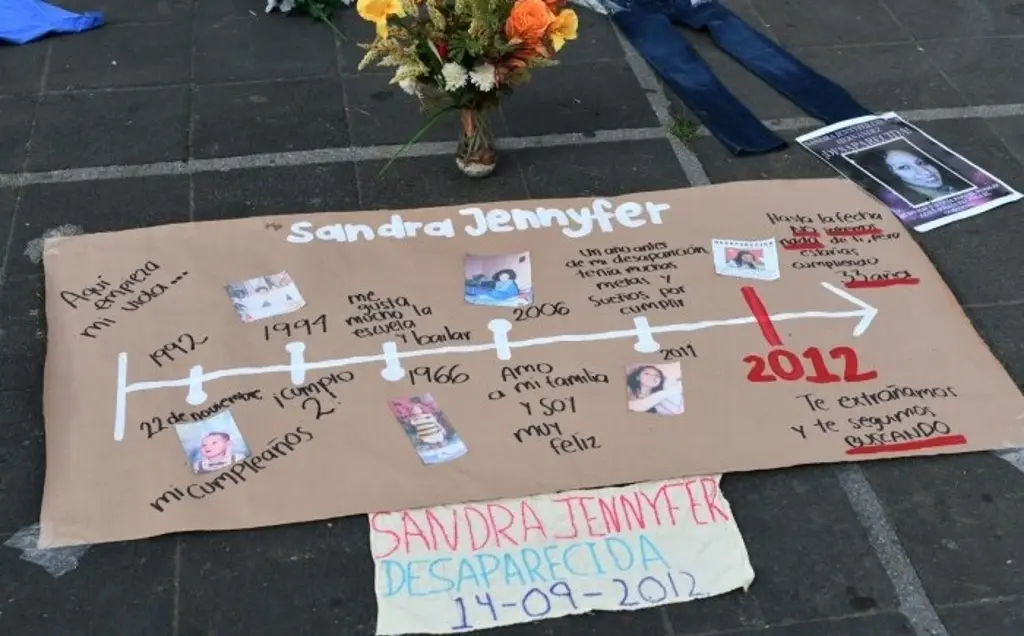 Sandra Jennyfer
Aquí
empieza
mi vida...
1992
22 de noviembre
mi cumpleaños
1994
¡cumplo
2!
me
gusta
mucho la
escuela
y bailar
1966
2006
Amo
a mi familia
y soy
muy
feliz
Un año antes
de mi desaparición
tenía muchas
metas y
sueños por
cumplir
2011
2012
Hasta la fecha
nada de ti, pero
estarías
cumpliendo
33 años
Te extrañamos
y te seguimos
BUSCANDO
DESAPARECIDA
SANDRA JENNYFER
DESAPARECIDA
14-09-2012